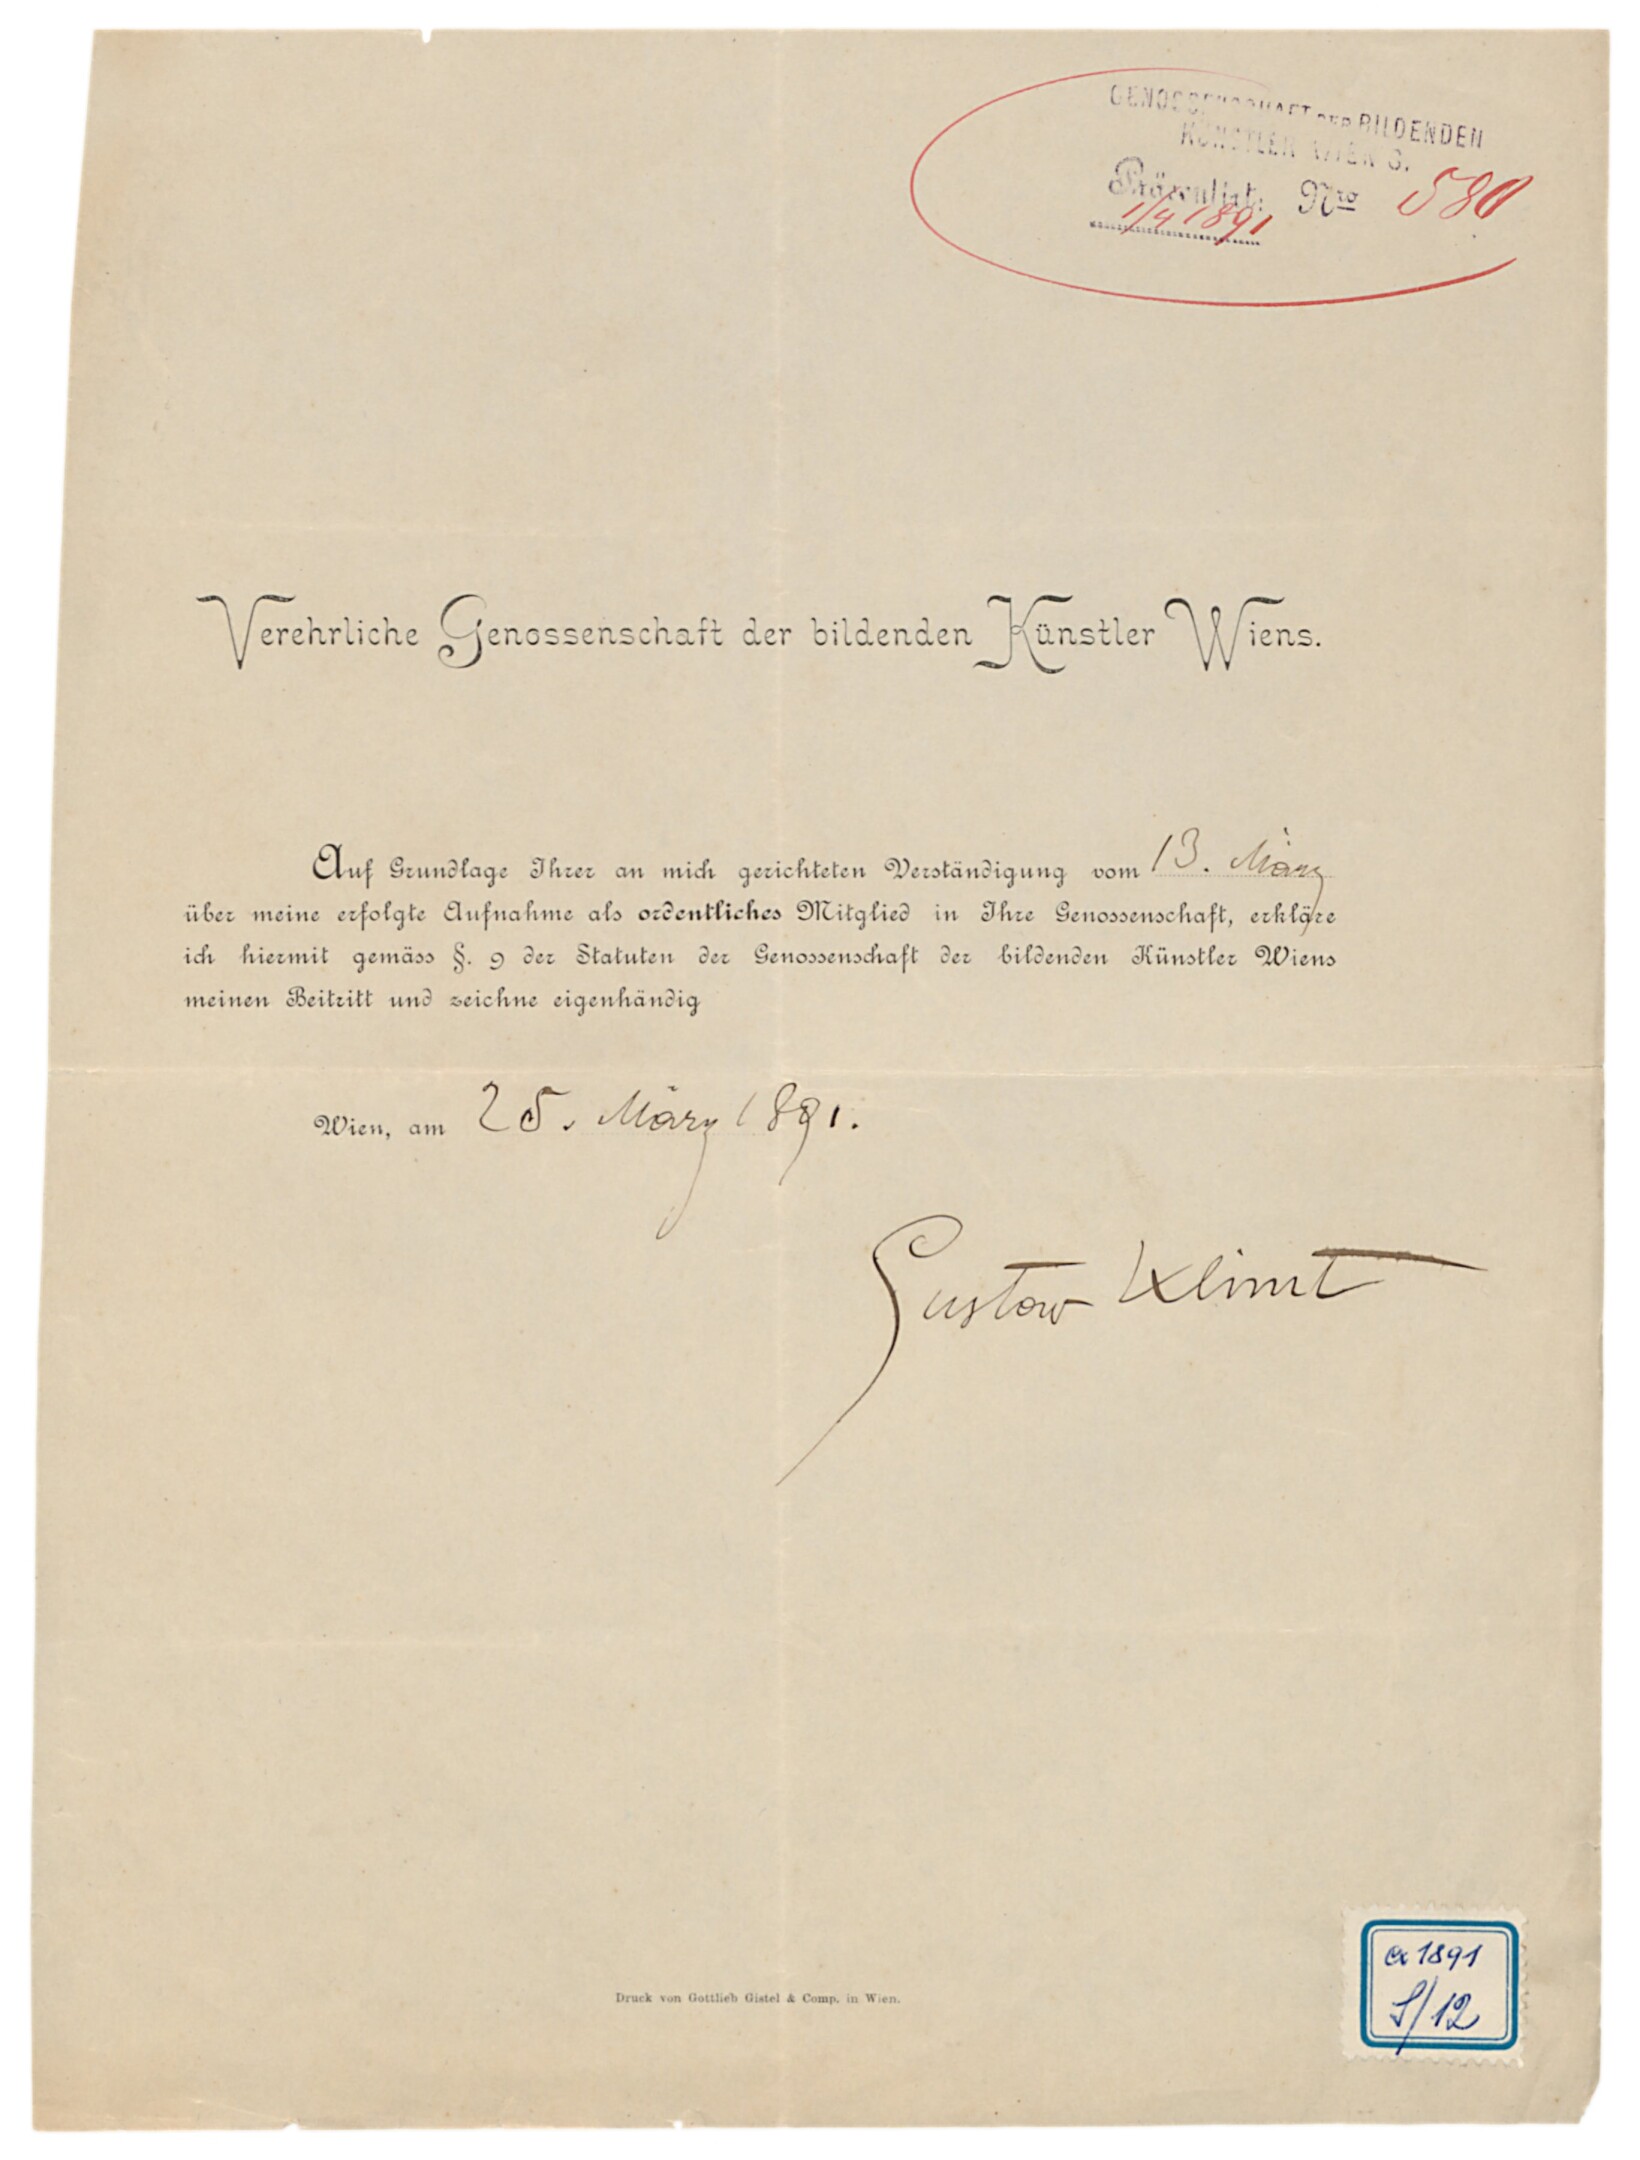 GENOSSENSCHAFT DER BILDENDEN
KÜNSTLER WIEN'S.
Präsentirt: Nro 580
1/4 1891
Verehrliche Genossenschaft der bildenden Künstler Wiens.
Auf Grundlage Ihrer an mich gerichteten Verständigung vom 13. März
über meine erfolgte Aufnahme als ordentliches Mitglied in Ihre Genossenschaft, erkläre
ich hiermit gemäss §. 9 der Statuten der Genossenschaft der bildenden Künstler Wiens
meinen Beitritt und zeichne eigenhändig
Wien, am 25. März 1891.
Gustav Klimt
1891
/12
Druck von Gottlieb Gistel & Comp. in Wien.